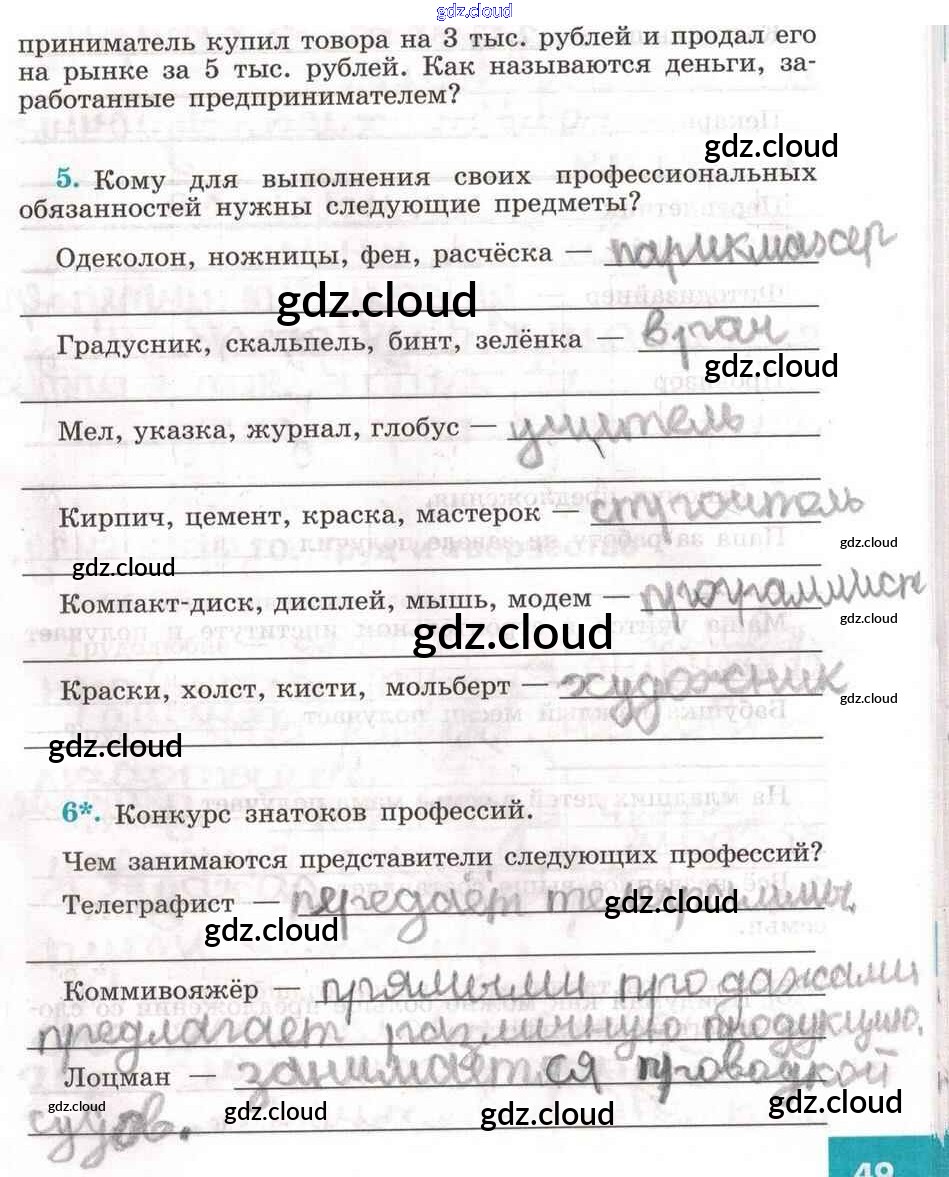 gdz.cloud
приниматель купил товора на 3 тыс. рублей и продал его
на рынке за 5 тыс. рублей. Как называются деньги, за-
работанные предпринимателем?
gdz.cloud
5. Кому для выполнения своих профессиональных
обязанностей нужны следующие предметы?
Одеколон, ножницы, фен, расчёска — парикмахер
gdz.cloud
Градусник, скальпель, бинт, зелёнка — врач
gdz.cloud
Мел, указка, журнал, глобус — учитель
Кирпич, цемент, краска, мастерок — строитель
gdz.cloud
gdz.cloud
Компакт-диск, дисплей, мышь, модем — программист
gdz.cloud
gdz.cloud
Краски, холст, кисти, мольберт — художник
gdz.cloud
gdz.cloud
6*. Конкурс знатоков профессий.
Чем занимаются представители следующих профессий?
Телеграфист — передаёт телеграммы,
gdz.cloud
gdz.cloud
Коммивояжёр — прямыми продажами
предлагает различную продукцию.
Лоцман — занимается проводкой
судов.
gdz.cloud gdz.cloud gdz.cloud gdz.cloud
49